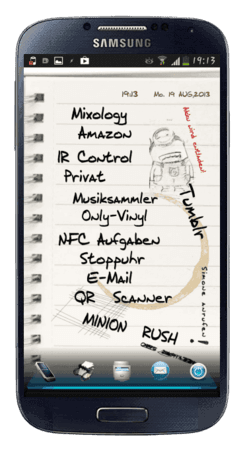 SAMSUNG
19:13
19:13 Mo. 19 AUG,2013
Mixology
Amazon
IR Control
Privat
Musiksammler
Only-Vinyl
NFC Aufgaben
Stoppuhr
E-Mail
QR Scanner
MINION RUSH
Tumblr
Simone anrufen!